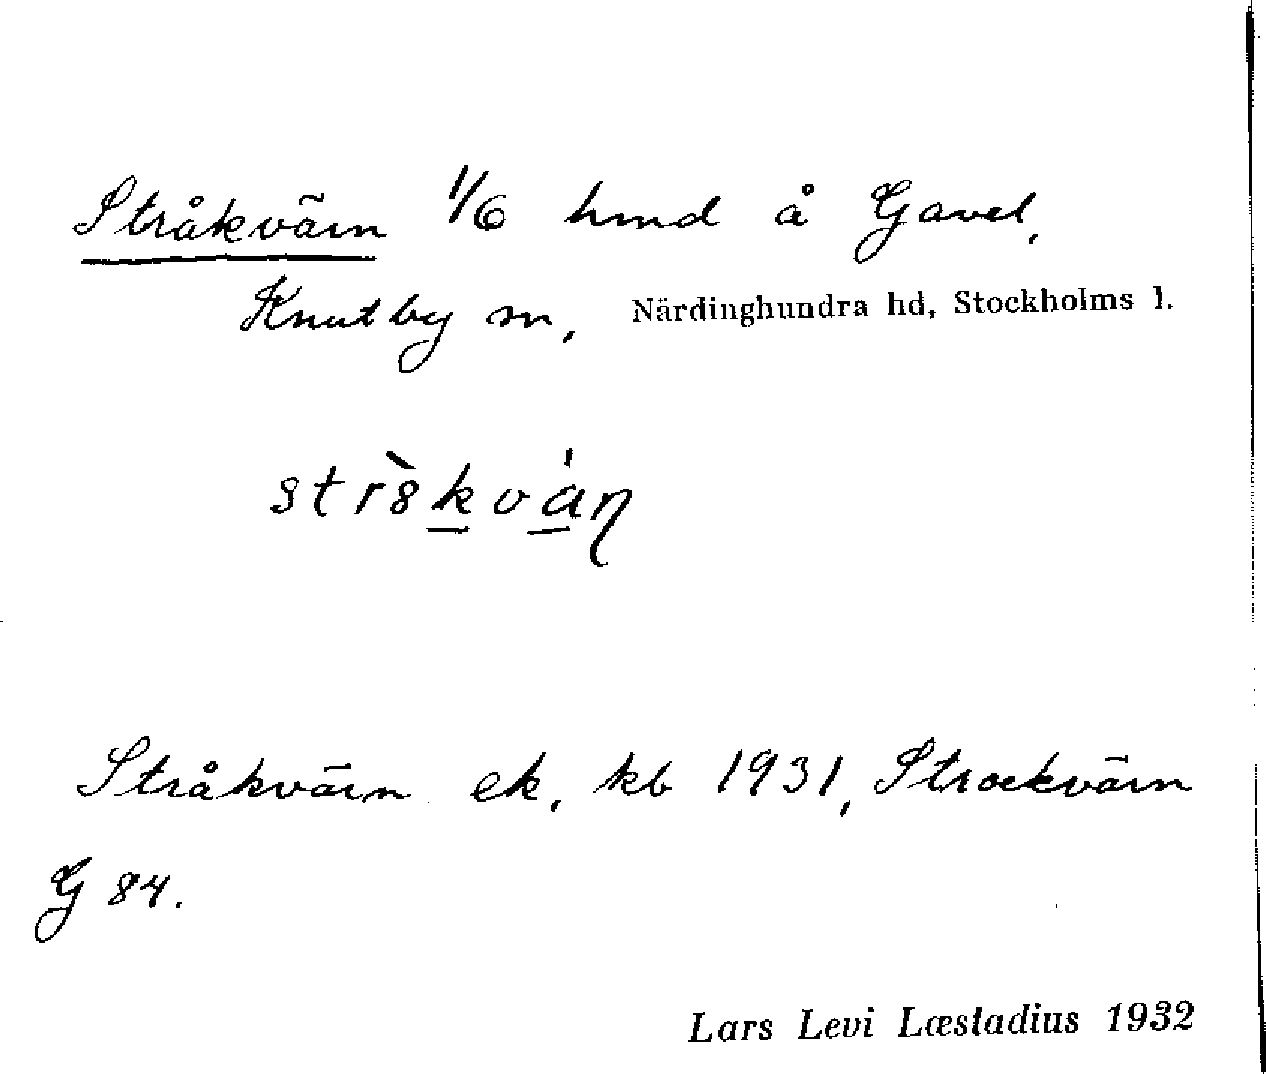 Stråkvärn 1/6 hmd å Gavel,
Knutby sn, Närdinghundra hd, Stockholms l.
Stråkvärn ek, kb 1931, Strockvärn
G 84.
Lars Levi Læstadius 1932